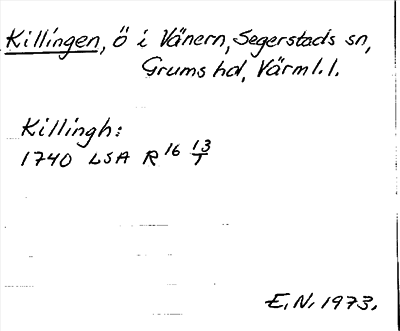 Killingen, ö i Vänern, Segerstads sn,
Grums hd, Värml. l.
Killingh:
1740 LSA R 16 13/1
E.N. 1973.